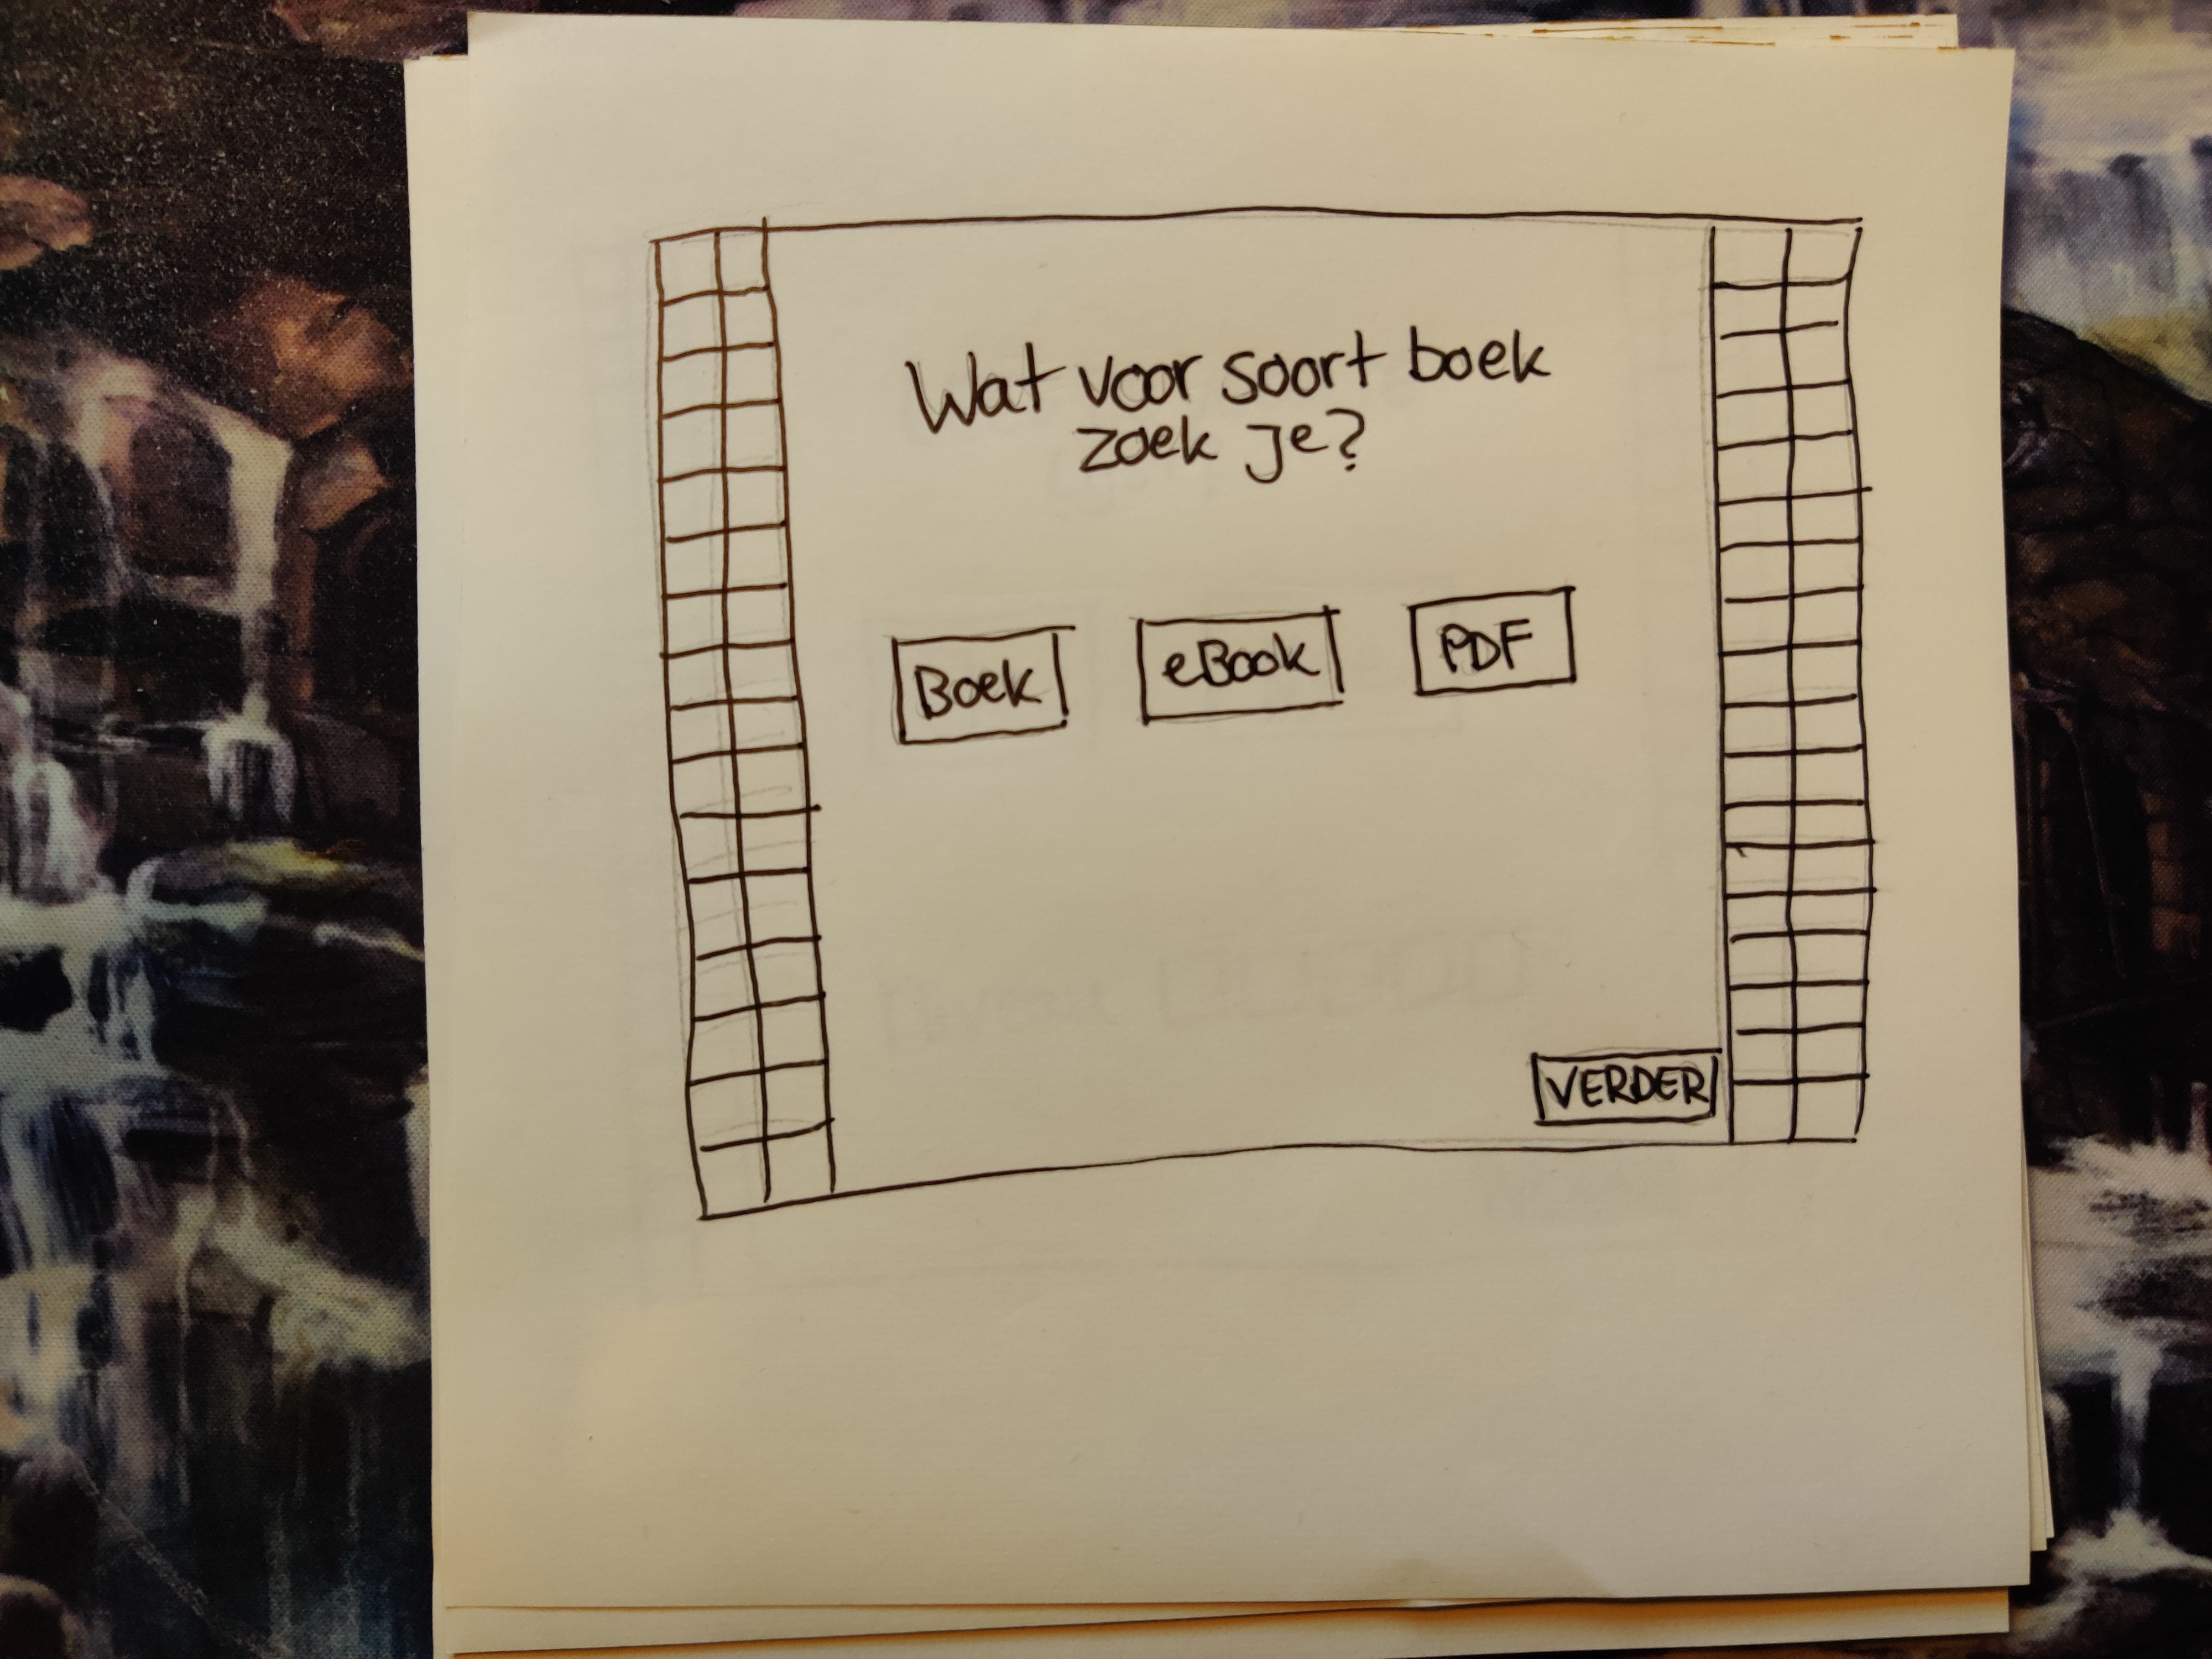 Wat voor soort boek
zoek je?
Boek eBook PDF
VERDER